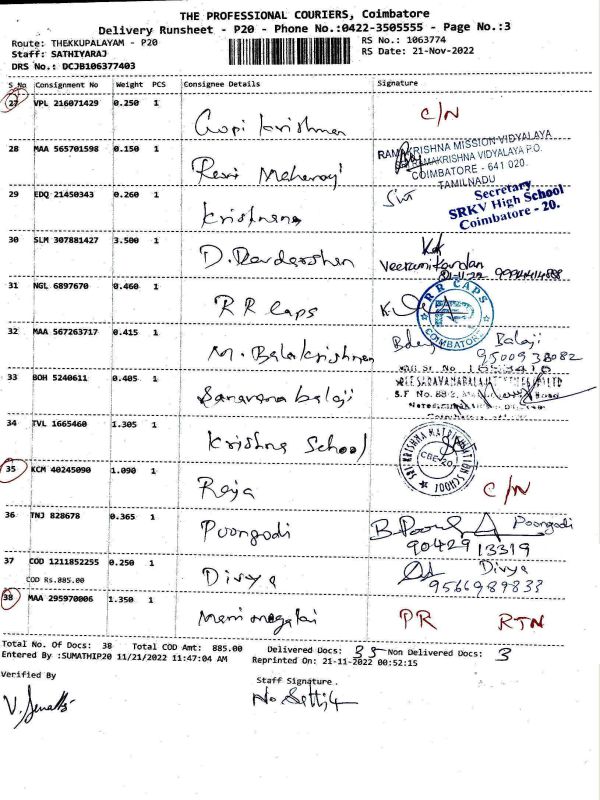 THE PROFESSIONAL COURIERS, Coimbatore
Delivery Runsheet - P20 - Phone No.:0422-3505555 - Page No.:3
Route: THEKKUPALAYAM - P20
RS No.: 1063774
Staff: SATHIYARAJ
RS Date: 21-Nov-2022
DRS No.: DCJB106377403
S_No Consignment No Weight PCS Consignee Details Signature
27 VPL 216071429 0.250 1 Gopi Krishnan C/N
28 MAA 565701598 0.150 1 Ravi
RAMAKRISHNA MISSION VIDYALAYA
RAMAKRISHNA VIDYALAYA P.O.
COIMBATORE - 641 020.
TAMILNADU
29 EDQ 21450343 0.260 1 Krishnana
Secretary
SRKV High School
Coimbatore - 20.
30 SLM 307881427 3.500 1
Veeramikandan
31 NGL 6897670 0.460 1 RR Caps
RR CAPS
COIMBATORE
32 MAA 567263717 0.415 1 M. Balakrishnan Balaji
9500938082
33 BOH 5240611 0.405 1 Saravana balaji
34 TVL 1665460 1.305 1 Krishna School
SRI KRISHNA MATRICULATION SCHOOL
CBE-20
35 KCM 40245090 1.090 1 Raja C/N
36 TNJ 828678 0.365 1 Poongodi Poongodi
9042913319
37 COD 1211852255 0.250 1 Divya Divya
COD Rs.885.00
9566989833
38 MAA 295970006 1.350 1 PR RTN
Total No. Of Docs: 38 Total COD Amt: 885.00 Delivered Docs: 35 Non Delivered Docs: 3
Entered By :SUMATHIP20 11/21/2022 11:47:04 AM Reprinted On: 21-11-2022 00:52:15
Verified By
Staff Signature